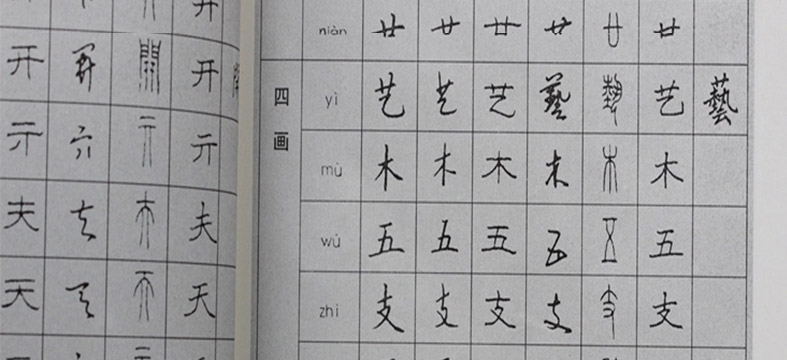 开 开 開 开
亓 亓 亓 亓
夫 夫 夫 夫
天 天 天 天
niàn 廿 廿 廿 廿 廿 廿
四画
yì 艺 艺 艺 藝 埶 艺 藝
mù 木 木 木 木 木 木
wǔ 五 五 五 五 五 五
zhī 支 支 支 支 支 支